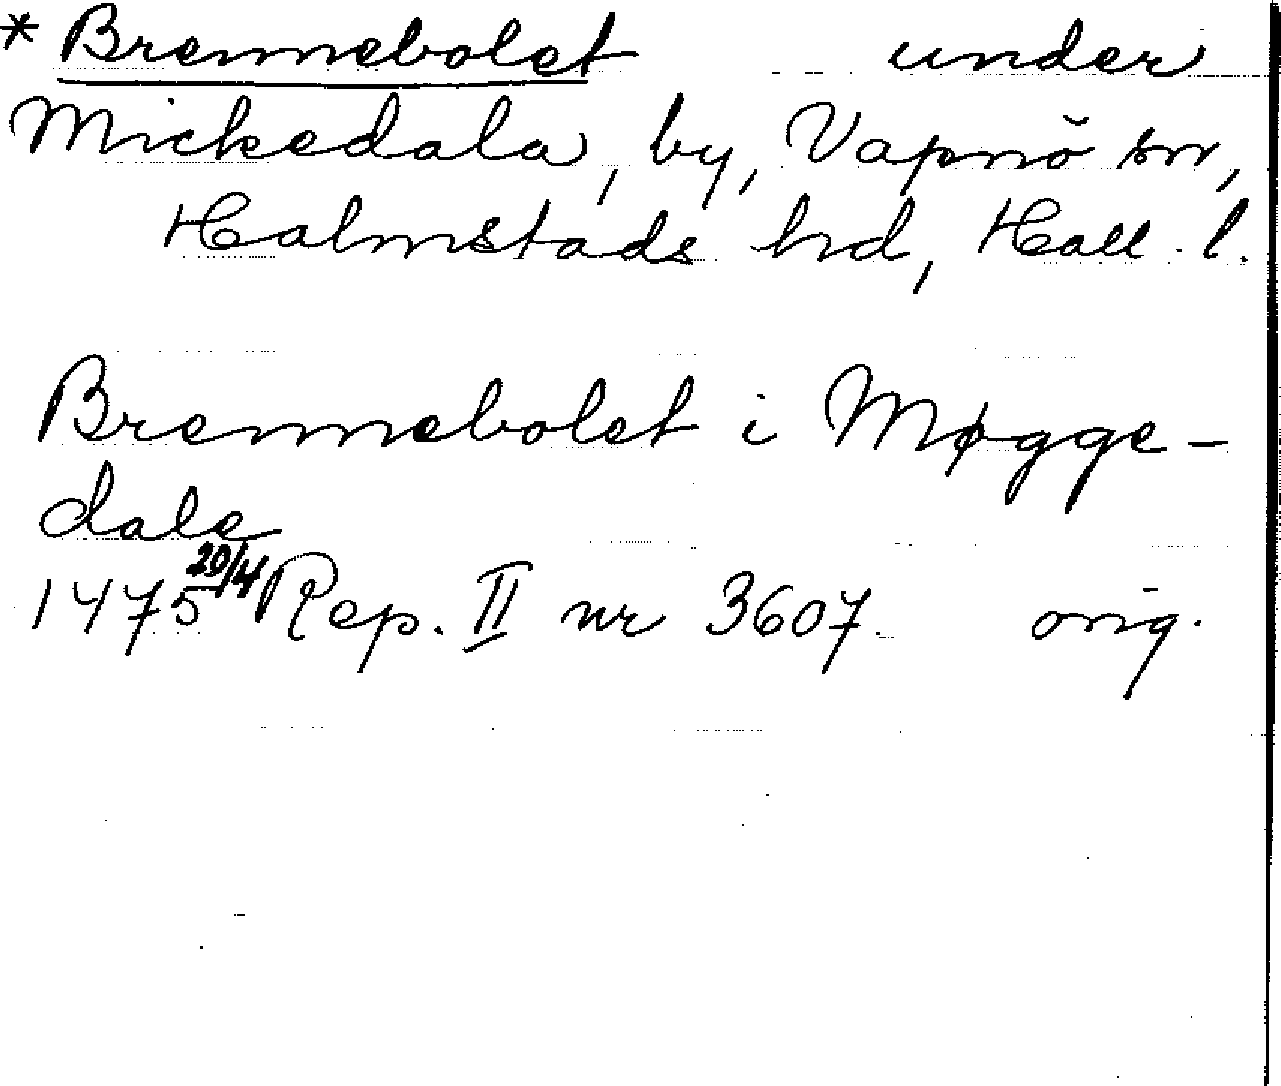 * Brennebolet under
Mickedala, by, Vapnö sn,
Halmstads hd, Hall. l.
Brennebolet i Møgge-
dale
1475 20/4 Rep. II nr 3607. orig.